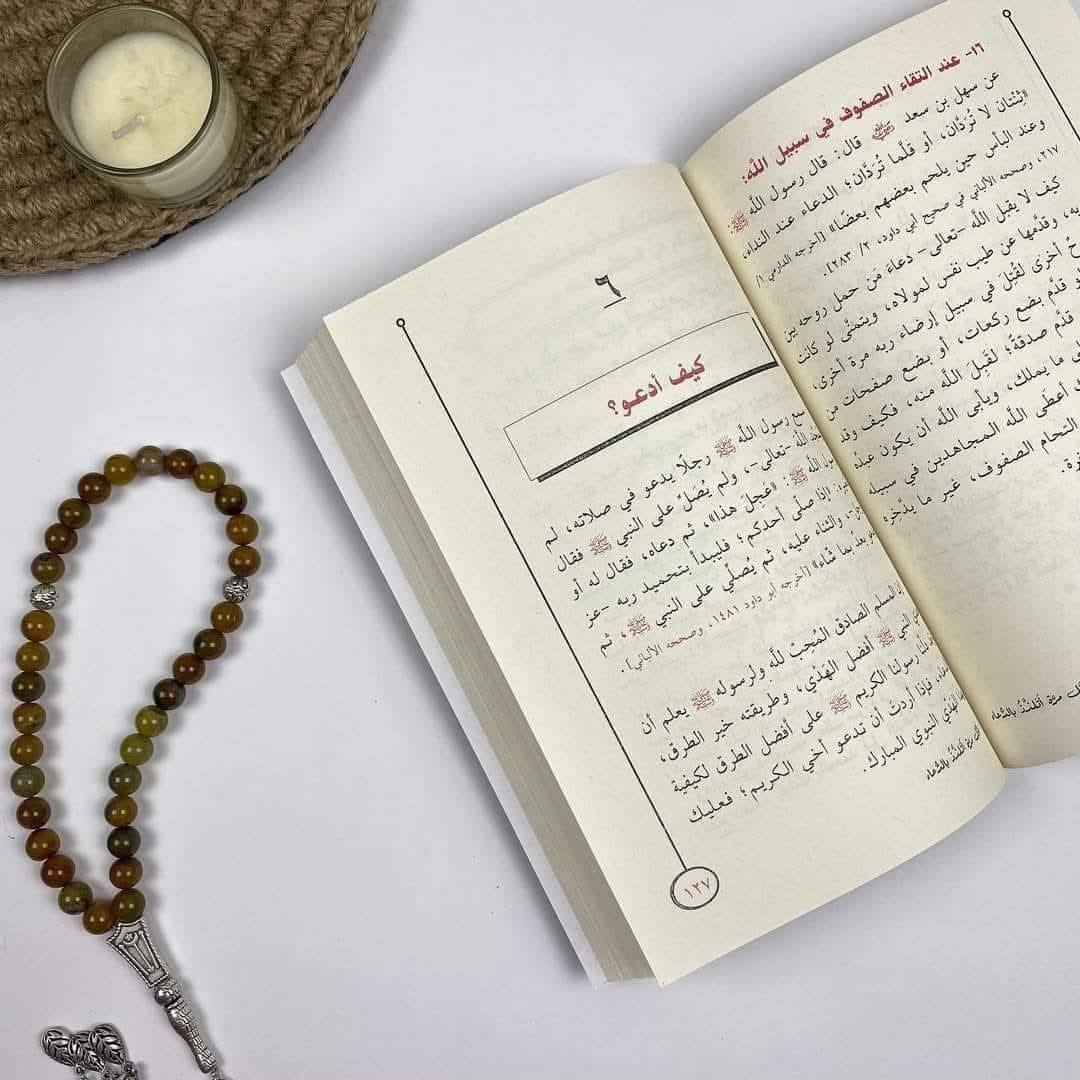 ١٦- عند التقاء الصفوف في سبيل الله:
عن سهل بن سعد رضي الله عنه قال: قال رسول الله ﷺ:
«ثِنْتان لا تُرَدَّان، أو قَلّما تُرَدَّان؛ الدعاء عند النداء،
وعند البأس حين يلحم بعضهم بعضًا» [أخرجه الدارمي ١/
٢١٧، وصححه الألباني في صحيح أبي داود، ٣/ ٢٨٣].
كيف لا يقبل الله -تعالى- دعاءَ مَن حمل روحه بين
وقدَّمها عن طيب نفس لمولاه، ويتمنَّى لو كانت
أخرى لقُتِلَ في سبيل إرضاء ربه مرة أخرى،
قدَّم بضع ركعات، أو بضع صفحات من
قدَّم صدقةً؛ لقَبِلَ الله منه، فكيف وقد
ما يملك، ويأبى الله أن يكون عبدُه
أعطى الله المجاهدين في سبيله
التحام الصفوف، غير ما يدَّخِره
مرّة أتلذذ بالدعاء
٦
كيف أدعو؟
رسول الله ﷺ رجلًا يدعو في صلاته، لم
الله -تعالى-، ولم يُصَلِّ على النبي ﷺ فقال
الله ﷺ: «عَجِلَ هذا»، ثم دعاه، فقال له أو
«إذا صلى أحدكم؛ فليبدأ بتحميد ربه -عز
والثناء عليه، ثم يُصلِّي على النبي ﷺ، ثم
بعدُ بما شاء» [أخرجه أبو داود ١٤٨١، وصححه الألباني].
المسلم الصادق المُحِبّ للهِ ولرسوله ﷺ يعلم أن
النبي ﷺ أفضل الهَدْي، وطريقته خير الطرق،
رسولنا الكريم ﷺ على أفضل الطرق لكيفية
فإذا أردتَ أن تدعو أخي الكريم؛ فعليك
الهَدْي النبوي المبارك.
أتلذذ بالدعاء
١٢٧